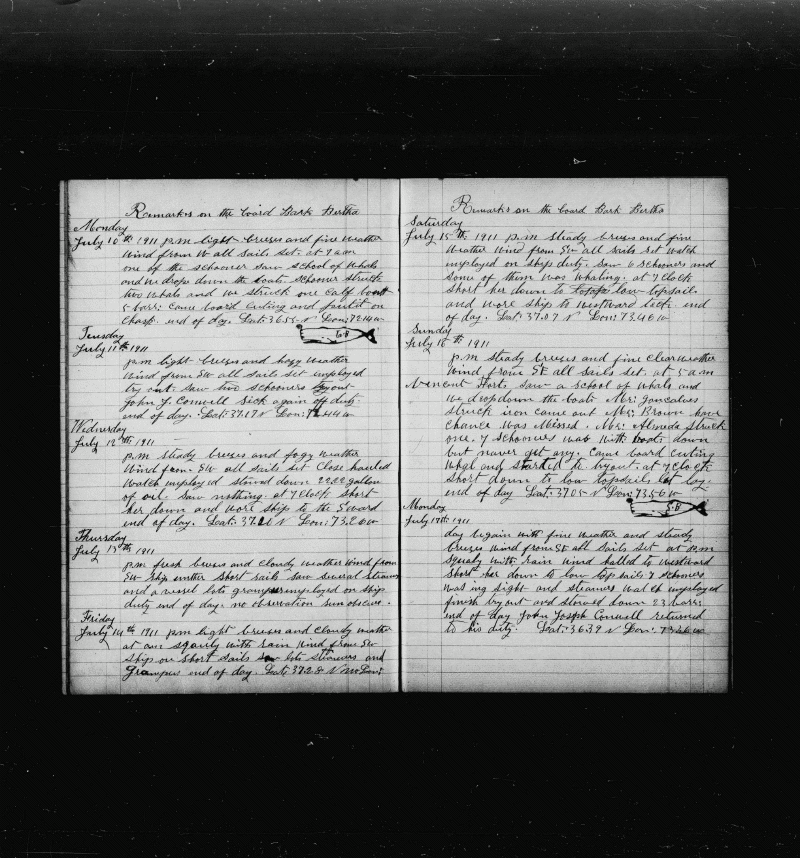 Remarkes on the board Bark Bertha
Monday
July 10th 1911 p.m light breses and fine weather
wind from W all sails set. at 9 am
one of the schooner saw school of whals
and we drop down the boats. schooner struck
two whals and we struck one calf
5 barr: came board cuting and
end of day. Lat: 36.55 N Lon: 72.14 w
Tuesday
July 11th 1911
p.m light breses and hazy weather
wind from SW all sails set imployed
try out. saw two schooners byout
John J. Conwell sick again off duty
end of day. Lat: 37.17 N Lon: 72.44 w
Wednesday
July 12th 1911
p.m steady breses and fogy weather
Wind from SW all sails set Close hauled
Watch imployed stowd down gallon
of oil saw nothing. at 7 clock short
her down and wore ship to the Sward
end of day. Lat: 37.20 N Lon: 73.26 w
Thursday
July 13th 1911
p.m fresh breses and cloudy weather wind from
SW ship unther short sails saw several steamers
and a wesel lots grampus imployed on ship
duty end of day. no observation sun obscur.
Friday
July 14th 1911 p.m light breeses and cloudy weather
at squaly with rain wind from SW
ship on short sails saw lots steamers and
Grampus end of day. Lat: 37.28 N no Lon:
Remarks on the board Bark Bertha
Saturday
July 15th 1911 p.m steady breses and fine
weather wind from SW all sails set watch
imployed on ship duty. saw 6 schooners and
some of them was whaling. at 7 clock
short her down to low topsail
and wore ship to westward tack. end
of day. Lat: 37.07 N Lon: 73.40 w
Sunday
July 16th 1911
p.m steady breses and fine clear weather
wind from SE all sails set. at 5 am
saw a school of whals and
we drop down the boats Mr: Goncalves
struck iron came out Mr: Brown have
chance was Missed. Mr: Almeda struck
one. 7 schooners was with boats down
but never get any. Came board cuting
and started to byout. at 7 clock
short down to low topsails
end of day Lat: 37.05 N Lon: 73.56 w
Monday
July 17th 1911
day begain with fine weather and steady
breses wind from SE all sails set at p.m
squaly with rain wind halled to westward
short her down to low topsails 7 schooners
was ing sight and steamers watch imployed
finish byout and stowed down 23 barr:
end of day John Joseph Conwell returned
to his duty. Lat: 36.39 N Lon: